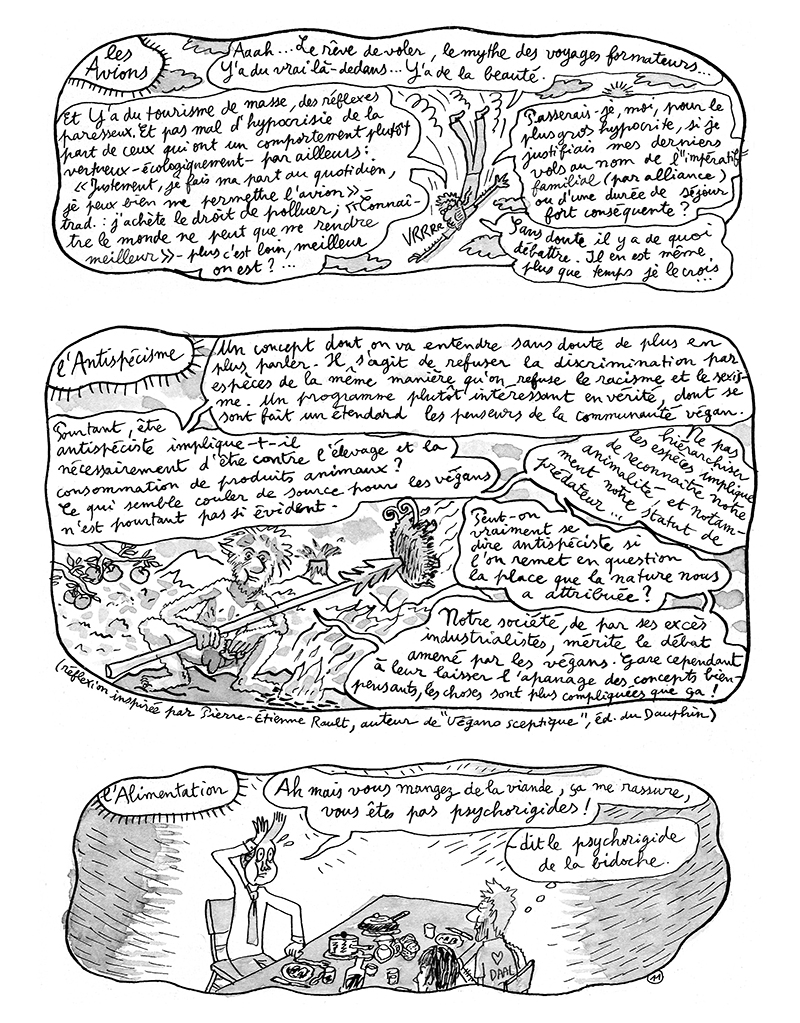 les
Avions
Aaah... Le rêve de voler, le mythe des voyages formateurs...
Y'a du vrai là-dedans... Y'a de la beauté.
Et Y'a du tourisme de masse, des réflexes
paresseux. Et pas mal d'hypocrisie de la
part de ceux qui ont un comportement plutôt
vertueux - écologiquement - par ailleurs:
"Justement, je fais ma part au quotidien,
je peux bien me permettre l'avion" -
trad. : j'achète le droit de polluer; "Connaî-
tre le monde ne peut que me rendre
meilleur" - plus c'est loin, meilleur
on est ?...
VRRRR
Passerais-je, moi, pour le
plus gros hypocrite, si je
justifiais mes derniers
vols au nom de l'"impératif
familial (par alliance)
ou d'une durée de séjour
fort conséquente ?
Sans doute il y a de quoi
débattre. Il en est même
plus que temps je le crois...
l'Antispécisme
Un concept dont on va entendre sans doute de plus en
plus parler. Il s'agit de refuser la discrimination par
espèces de la même manière qu'on refuse le racisme et le sexis-
me. Un programme plutôt intéressant en vérité, dont se
sont fait un étendard les penseurs de la communauté végan.
Pourtant, être
antispéciste implique-t-il
nécessairement d'être contre l'élevage et la
consommation de produits animaux ?
Ce qui semble couler de source pour les végans
n'est pourtant pas si évident.
Ne pas
hiérarchiser
les espèces implique
de reconnaître notre
animalité et notam-
ment notre statut de
prédateur...
Peut-on
vraiment se
dire antispéciste si
l'on remet en question
la place que la nature nous
a attribuée ?
Notre société, de par ses excès
industrialistes, mérite le débat
amené par les végans. Gare cependant
à leur laisser l'apanage des concepts bien-
pensants, les choses sont plus compliquées que ça !
(réflexion inspirée par Pierre-Étienne Rault, auteur de "Végano sceptique", éd. du Dauphin)
l'Alimentation
Ah mais vous mangez de la viande, ça me rassure,
vous êtes pas psychorigides !
- dit le psychorigide
de la bidoche.
DAAL
11